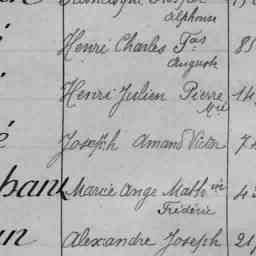 Alphonse
Henri Charles Fçois 85
Auguste
Henri Julien Pierre 14
Mie
é Joseph Amand Victor 7
Marie Ange Math in 4
Frédéric
Alexandre Joseph 21